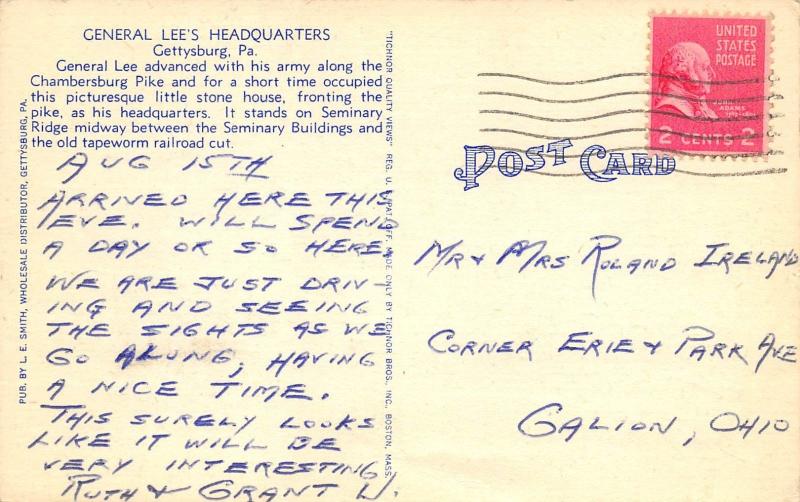 GENERAL LEE'S HEADQUARTERS
Gettysburg, Pa.
General Lee advanced with his army along the
Chambersburg Pike and for a short time occupied
this picturesque little stone house, fronting the
pike, as his headquarters. It stands on Seminary
Ridge midway between the Seminary Buildings and
the old tapeworm railroad cut.
AUG 15TH
ARRIVED HERE THIS
EVE. WILL SPEND
A DAY OR SO HERE.
WE ARE JUST DRIV-
ING AND SEEING
THE SIGHTS AS WE
GO ALONG, HAVING
A NICE TIME.
THIS SURELY LOOKS
LIKE IT WILL BE
VERY INTERESTING
RUTH & GRANT W.
PUB. BY L. E. SMITH, WHOLESALE DISTRIBUTOR, GETTYSBURG, PA.
"TICHNOR QUALITY VIEWS" REG. U. S. PAT. OFF. MADE ONLY BY TICHNOR BROS., INC., BOSTON, MASS.
POST CARD
UNITED
STATES
POSTAGE
JOHN
ADAMS
2 CENTS 2
MR & MRS ROLAND IRELAND
CORNER ERIE & PARK AVE
GALION, OHIO